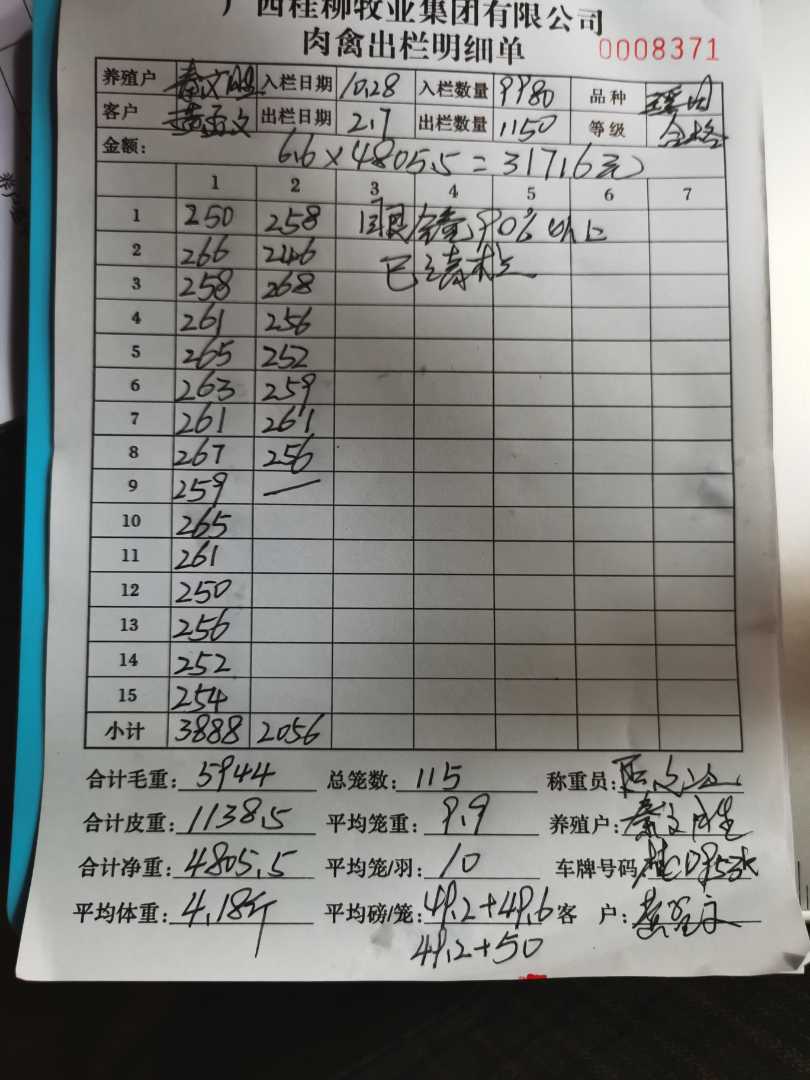 广西桂柳牧业集团有限公司
肉禽出栏明细单 0008371
养殖户 秦文 入栏日期 10.28 入栏数量 9980 品种
客户 出栏日期 2.7 出栏数量 1150 等级 合格
金额: 6.6×4805.5=31716元
1 2 3 4 5 6 7
1 250 258 眼 90%以上
2 266 246 已
3 258 268
4 261 256
5 265 252
6 263 259
7 261 261
8 267 256
9 259 —
10 265
11 261
12 250
13 256
14 252
15 254
小计 3888 2056
合计毛重: 5944 总笼数: 115 称重员:
合计皮重: 1138.5 平均笼重: 9.9 养殖户: 秦文
合计净重: 4805.5 平均笼/羽: 10 车牌号码
平均体重: 4.18斤 平均磅/笼: 49.2+49.6 客户:
49.2+50